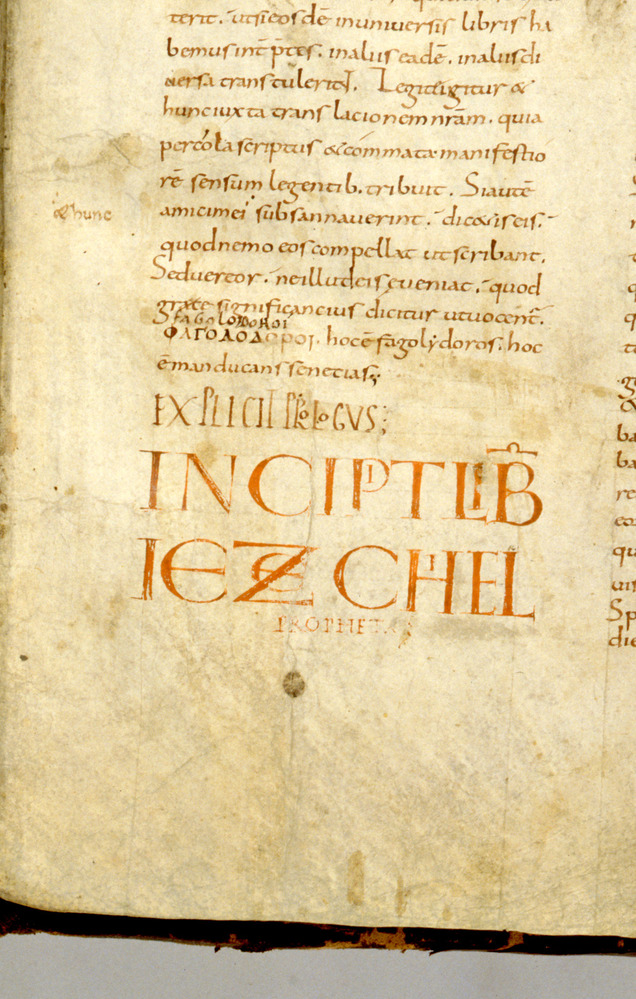 terit. utsi eosdē inuniuersis libris ha
bemus intp̄tes. inaliis eadē. inaliis di
uersa transtulerit. Legite igitur &
hunc iuxta translacionem nr̄am. quia
& hunc
per cola scriptus & commata manifestio
rē sensum legentib. tribuit. Si autē
amici mei subsannauerint. dicite eis.
quod nemo eos compellat ut scribant.
Sed uereor. ne illud eis eueniat. quod
grece significancius dicitur ut uocent.
fagolodoroi
ΦΑΓΟΛΟΔΟΡΟΙ. hoc ē fagolydoros. hoc
ē manducans senecias;
EXPLICIT PROLOGUS;
INCIPT LIB̄
IEZECHIEL
PROPHET